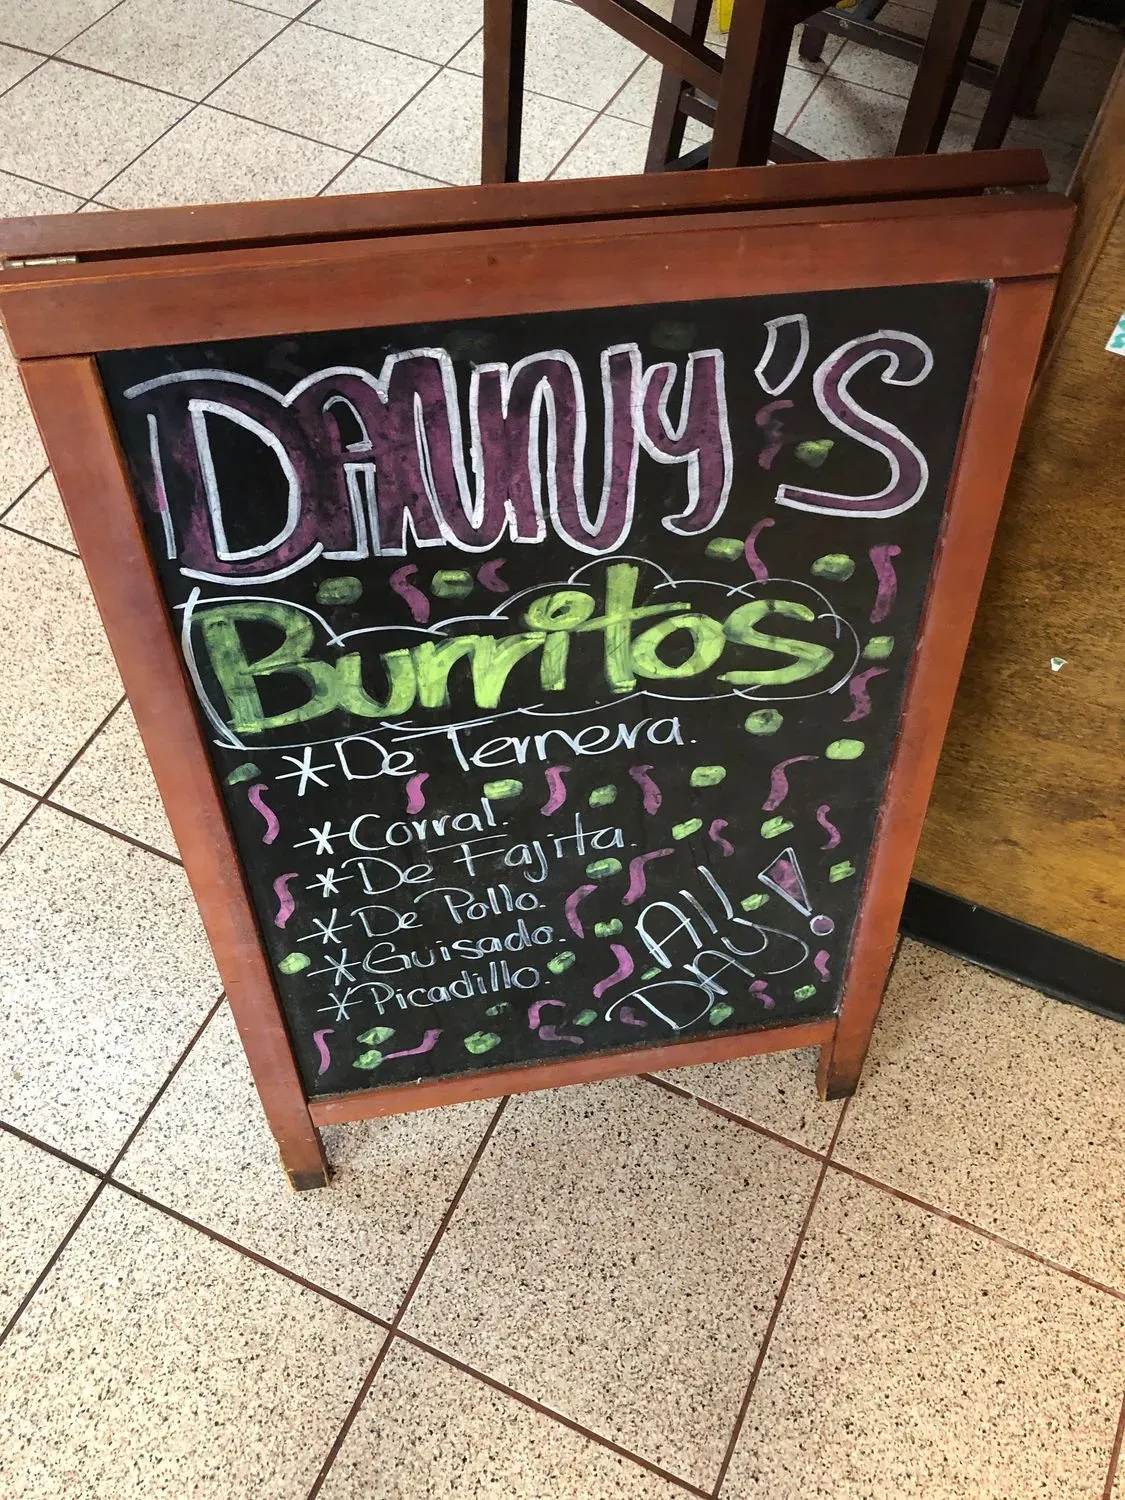 DANNY'S
Burritos
*De Ternera.
*Corral.
*De Fajita.
*De Pollo.
*Guisado.
*Picadillo.
All
DAY!